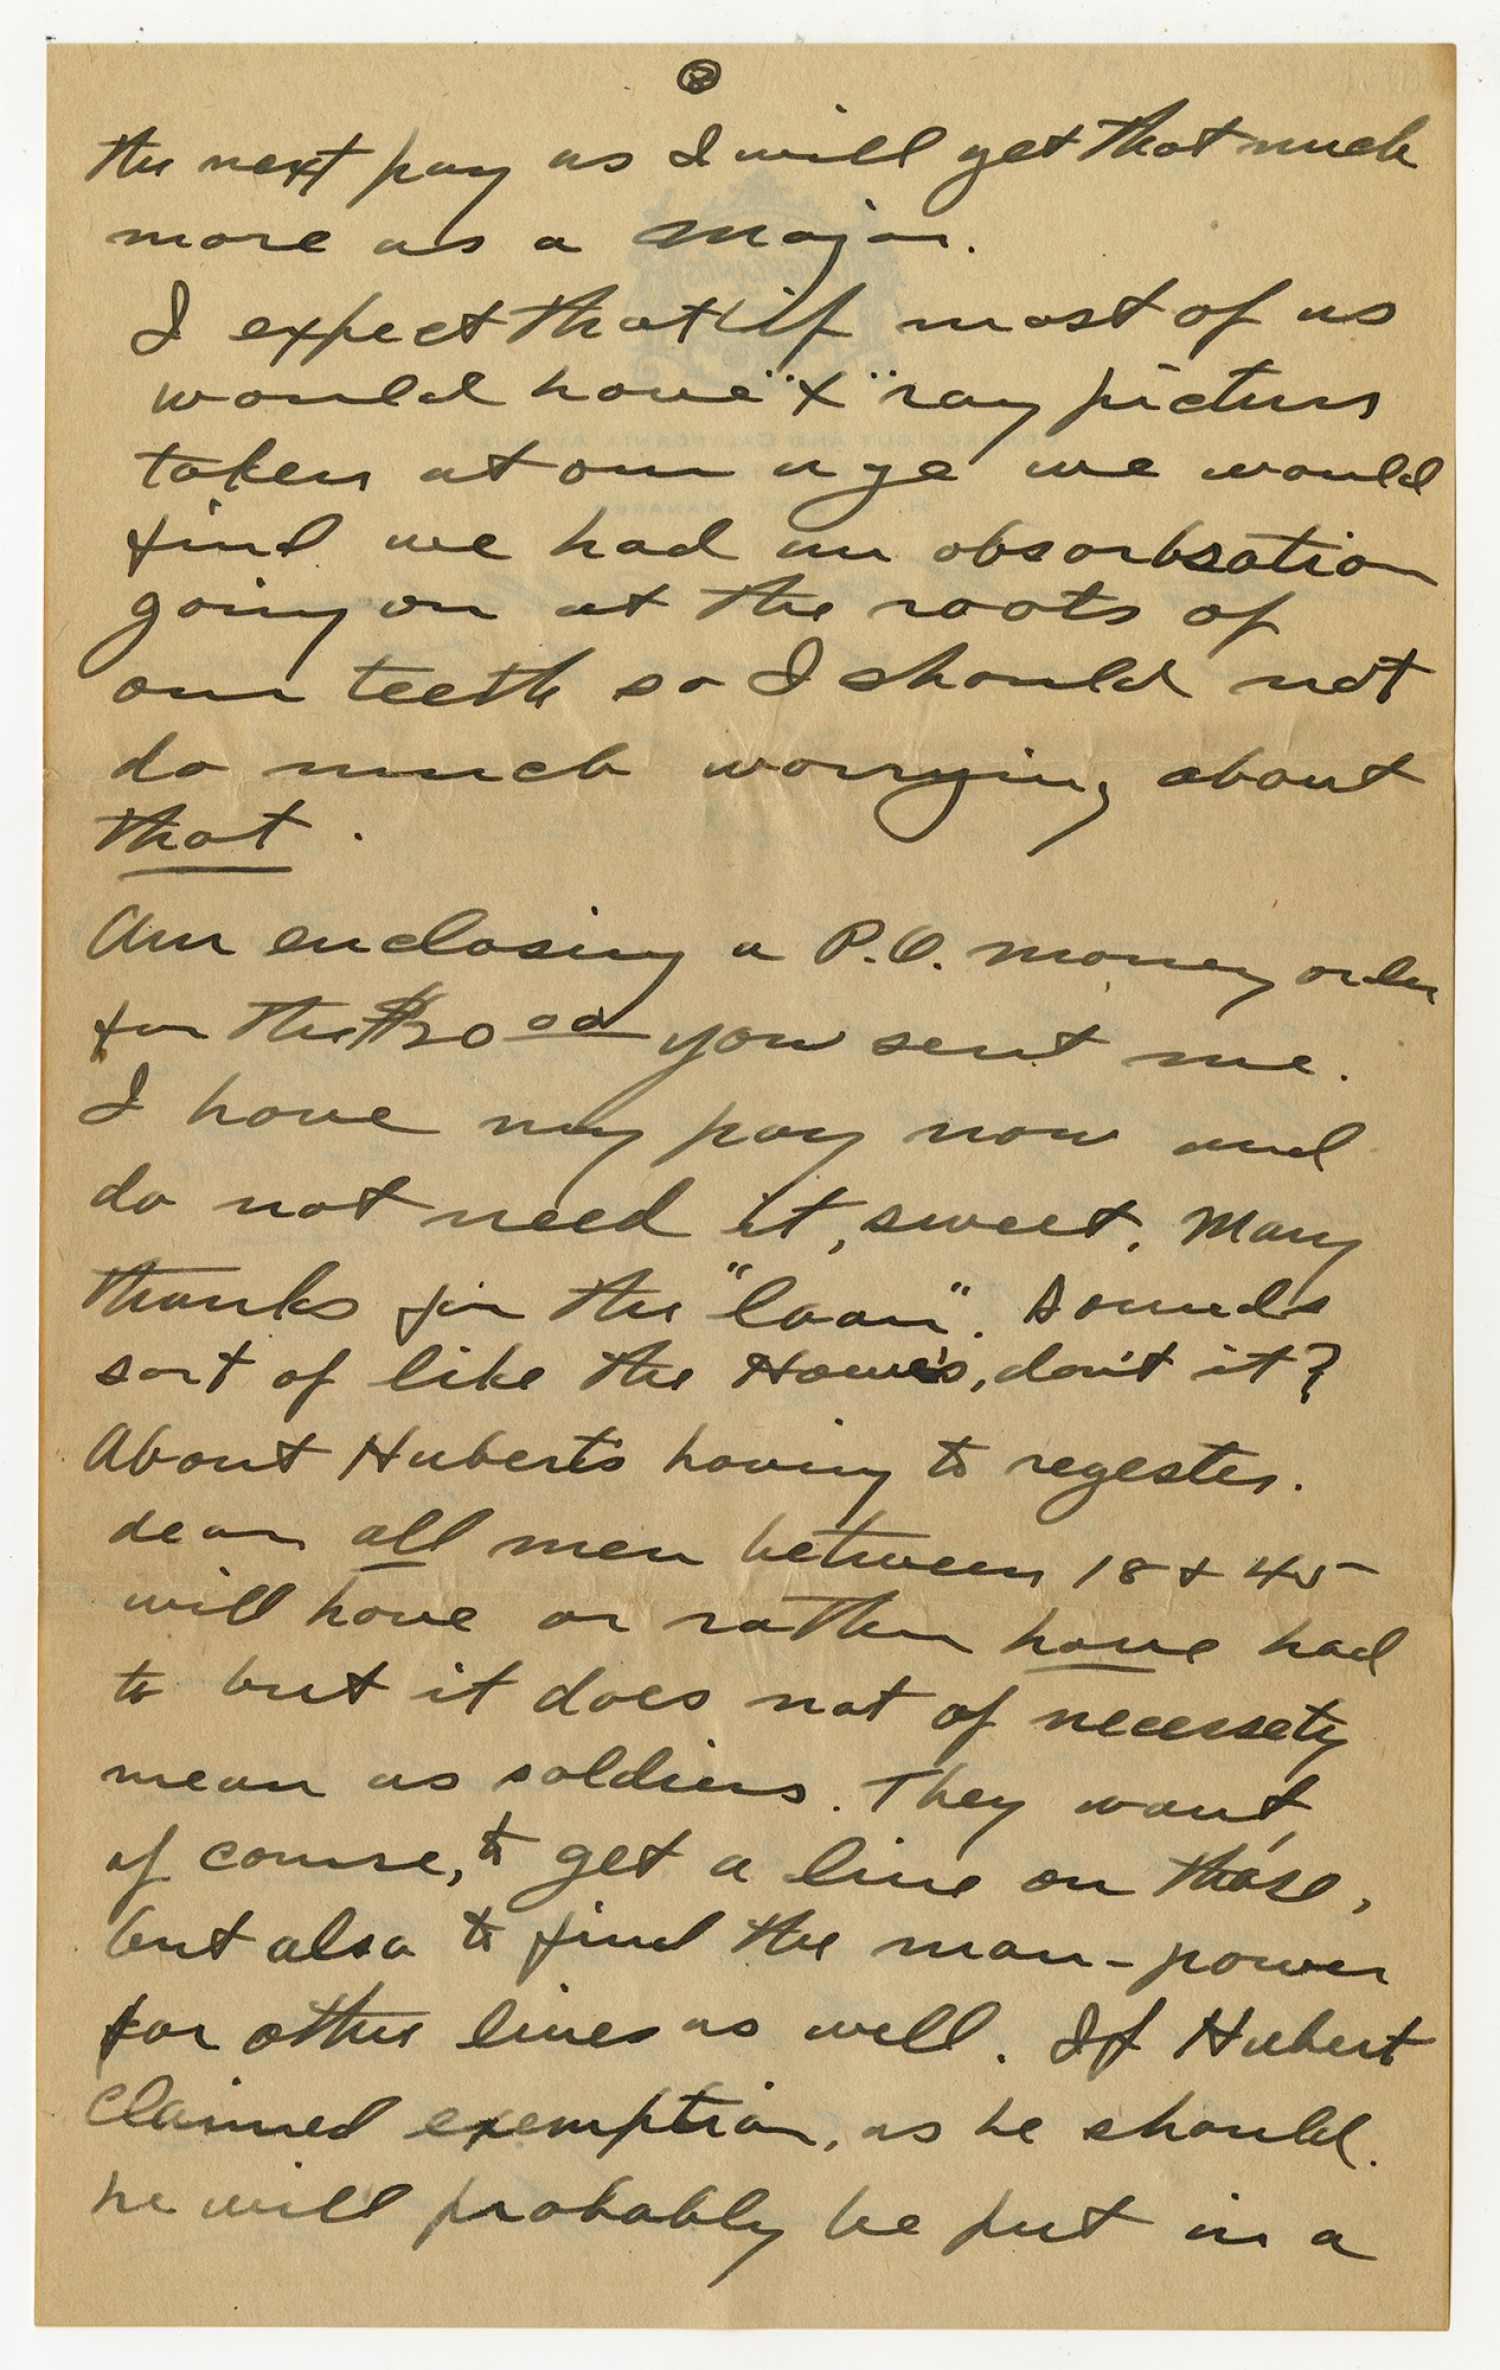 the next pay as I will get that much
more as a Major.
I expect that if most of us
would have "X" ray picturs
taken at our age we would
find we had an obsorbsation
going on at the roots of
our teeth so I should not
do much worrying about
that.
Am enclosing a P.O. money order
for the $20 00 you sent me.
I have my pay now and
do not need it, sweet. Many
thanks for the "loan". Sounds
sort of like the Howe's, don't it?
About Hubert's having to regester.
dear all men between 18 & 45
will have or rather have had
to but it does not of necessety
mean as soldiers. They want,
of course, to get a line on those,
but also to find the man-power
for other lines as well. If Hubert
claimed exemption, as he should.
he will probably be put in a